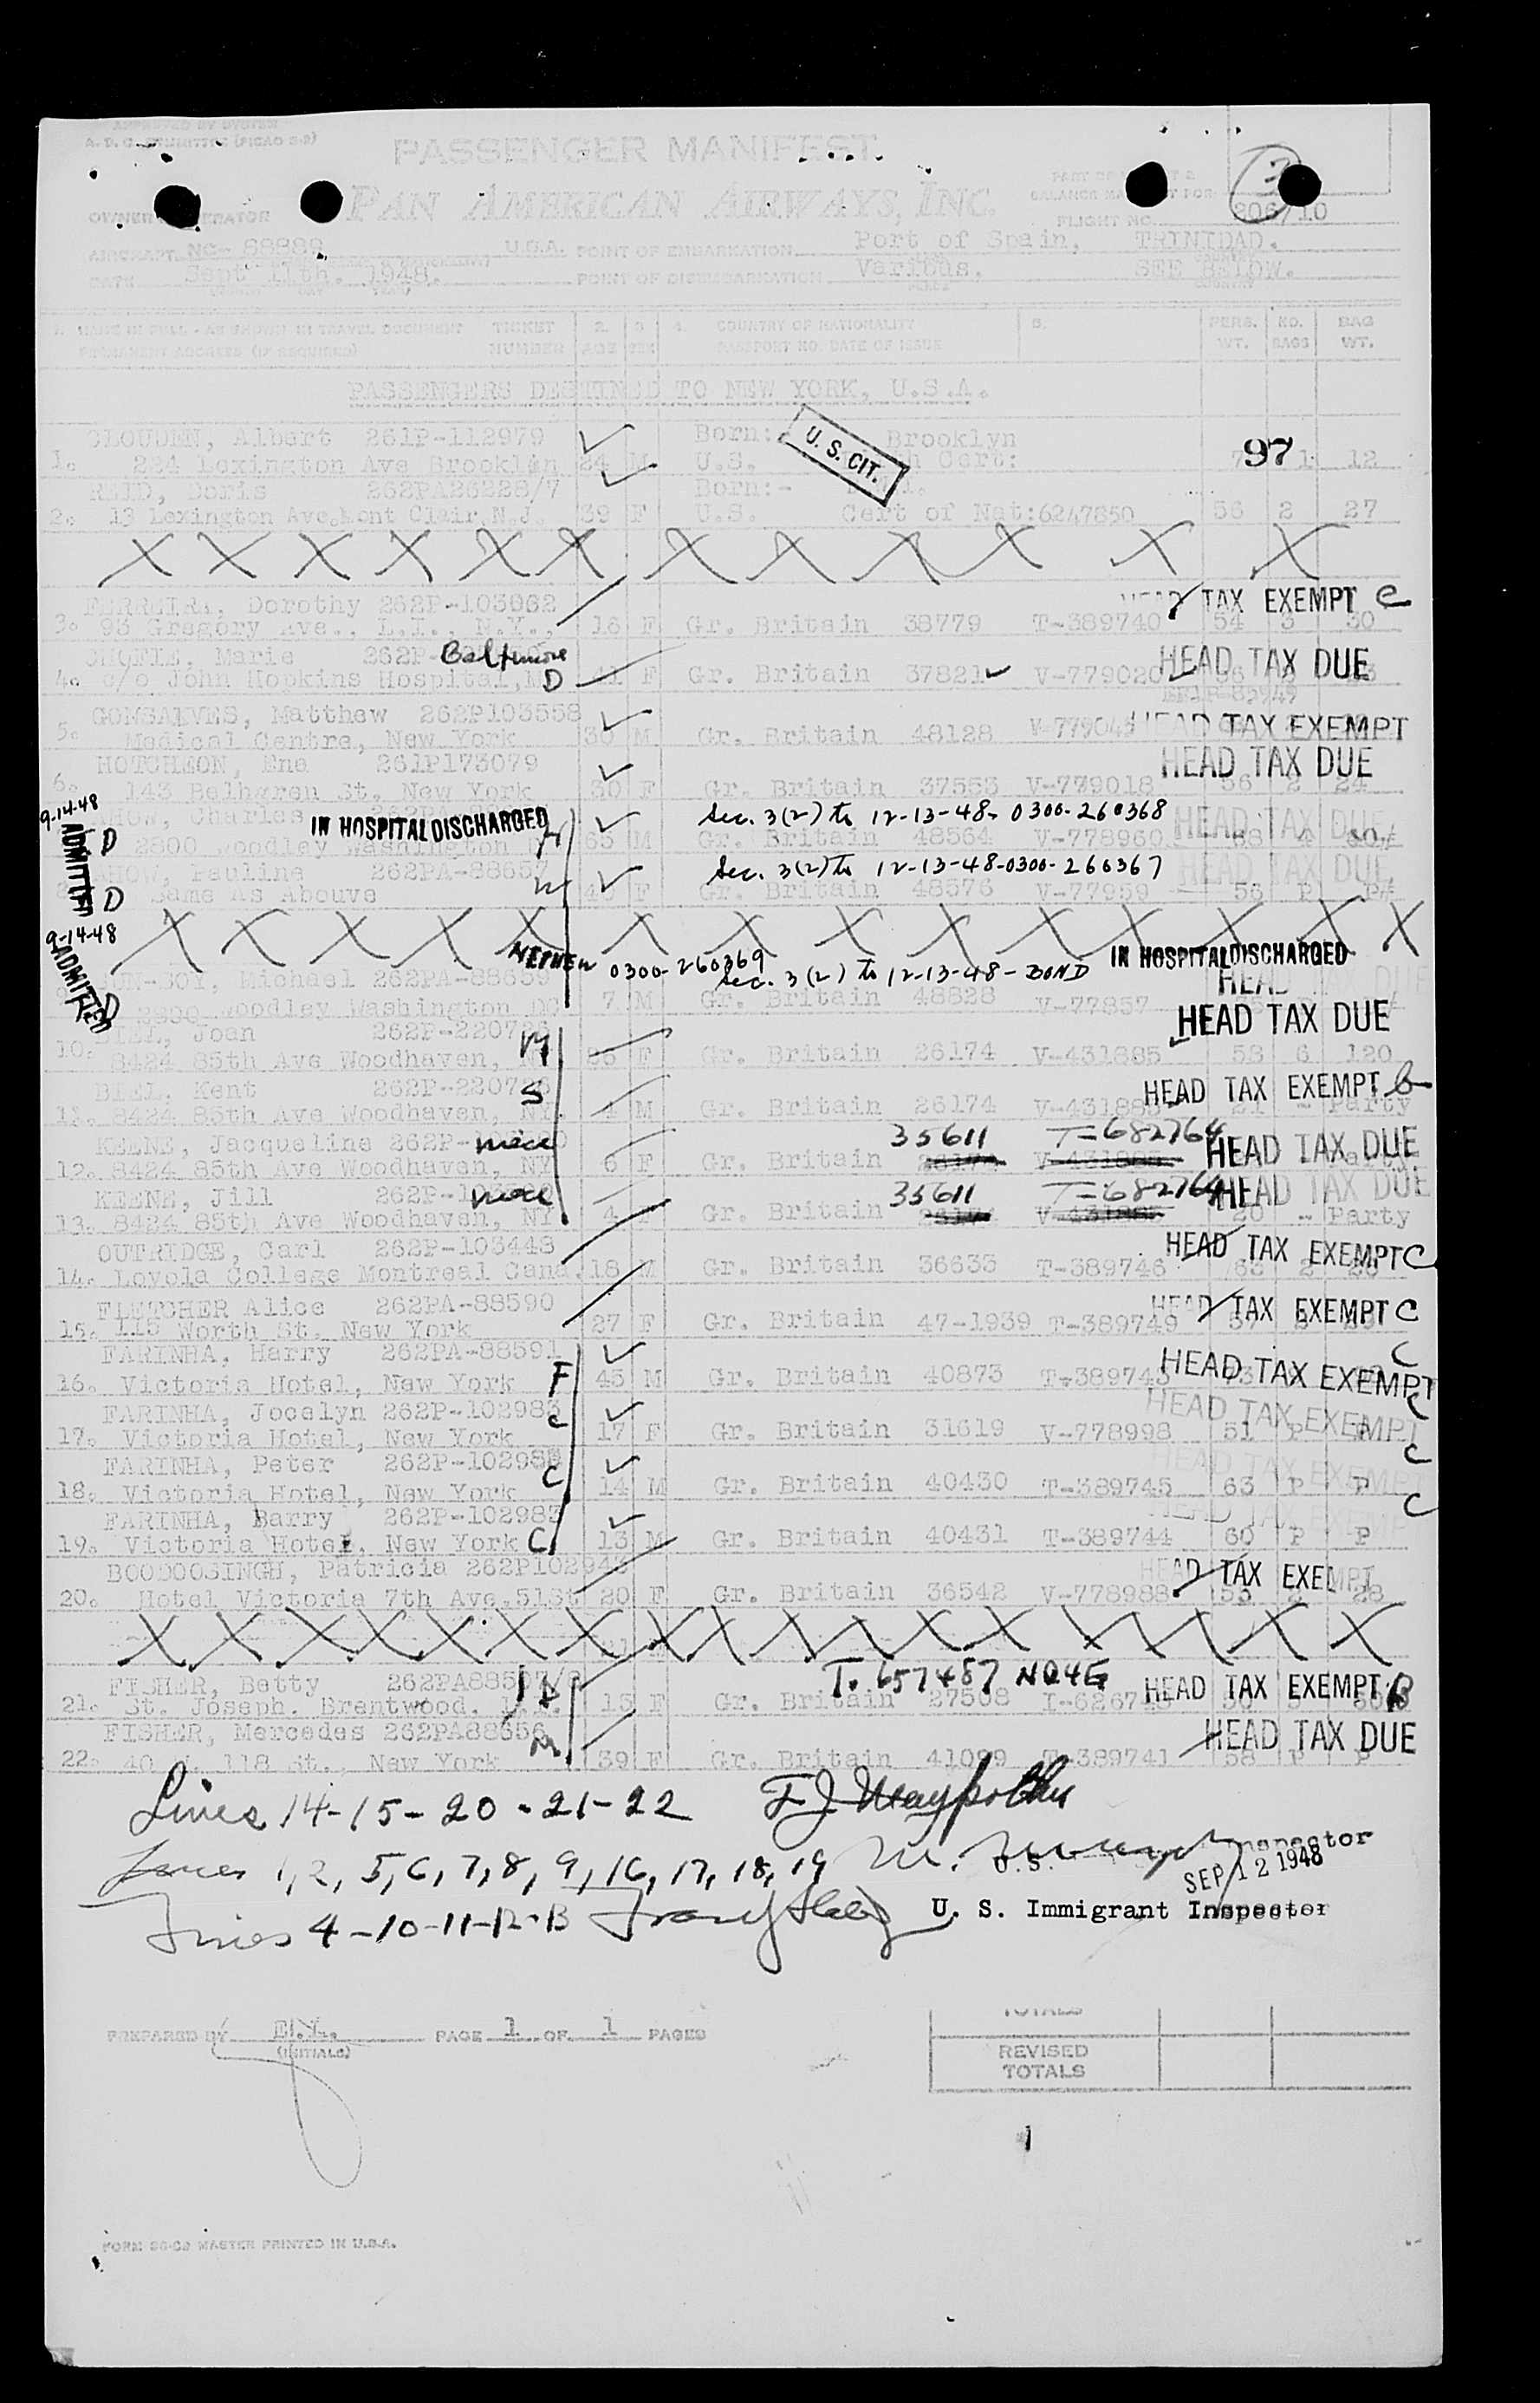 A. D. C. COMMITTEE (PICAO 3-2)
PASSENGER MANIFEST
PAN AMERICAN AIRWAYS, INC.
OWNER OPERATOR
FLIGHT NO. 206/10
AIRCRAFT NC- 88889 U.S.A. POINT OF EMBARKATION Port of Spain, TRINIDAD.
DATE Sept 11th. 1948. POINT OF DISEMBARKATION Various. SEE BELOW.
1. NAME IN FULL - AS SHOWN IN TRAVEL DOCUMENT TICKET 2. 3. 4. COUNTRY OF NATIONALITY 5. PERS. NO. BAG
PERMANENT ADDRESS (IF REQUIRED) NUMBER AGE SEX PASSPORT NO. DATE OF ISSUE WT. BAGS WT.
PASSENGERS DESTINED TO NEW YORK, U.S.A.
CLOUDEN, Albert 261P-112979 Born:- Brooklyn
U. S. CIT.
97
1. Lexington Ave Brooklin 24 M U.S. Cert: 1 12
REID, Doris 262PA26228/7 Born:-
2. 13 Lexington Ave. Mont Clair N.J. 39 F U.S. Cert of Nat:6247850 56 2 27
X X X X X X X X X X X X
FERREIRA, Dorothy 262P-103062 TAX EXEMPT C
3. 93 Gregory Ave., L.I., N.Y., 16 F Gr. Britain 38779 T-389740 54 3 30
Marie 262P- Baltimore HEAD TAX DUE
4. c/o John Hopkins Hospital, D 41 F Gr. Britain 37821 V-779020
GONSALVES, Matthew 262P103558 HEAD TAX EXEMPT
5. Medical Centre, New York 30 M Gr. Britain 48128 V-779045
HOTCHEON, Ena 261P173079 HEAD TAX DUE
6. 143 Belhgren St. New York 30 F Gr. Britain 37553 V-779018 56 2 24
9-14-48 ADMITTED D
Charles IN HOSPITAL DISCHARGED Sec. 3(2) to 12-13-48- 0300-260368 HEAD TAX DUE
2800 Woodley Washington 65 M Gr. Britain 48564 V-778960 68 4
Pauline 262PA-88657 Sec. 3(2) to 12-13-48-0300-260367 HEAD TAX DUE
D Same As Abouve 40 F Gr. Britain 48576 V-77959 56 P P
X X X X X X X X X X X X X X
9-14-48 ADMITTED D
NEPHEW 0300-260369 Sec. 3(2) to 12-13-48-BOND IN HOSPITAL DISCHARGED
Michael 262PA-88659 HEAD TAX DUE
Woodley Washington DC 7 M Gr. Britain 48828 V-77857
BIEL, Joan 262P-220728 M HEAD TAX DUE
10. 8424 85th Ave Woodhaven, NY 26 F Gr. Britain 26174 V-431885 53 6 120
BIEL, Kent S HEAD TAX EXEMPT b
11. 8424 85th Ave Woodhaven, NY. M Gr. Britain 26174 V-431885 21 - Party
KEENE, Jacqueline niece 35611 T-682764 HEAD TAX DUE
12. 8424 85th Ave Woodhaven, NY 6 F Gr. Britain
KEENE, Jill niece 35611 T-682764 HEAD TAX DUE
13. 8424 85th Ave Woodhaven, NY 4 F Gr. Britain 20 - Party
OUTRIDGE, Carl 262P-103448 HEAD TAX EXEMPT C
14. Loyola College Montreal Cana. 18 M Gr. Britain 36633 T-389746 63 2
FLETCHER Alice 262PA-88590 HEAD TAX EXEMPT C
15. 115 Worth St. New York 27 F Gr. Britain 47-1939 T-389749
FARINHA, Harry 262PA-88591 HEAD TAX EXEMPT C
16. Victoria Hotel, New York F 45 M Gr. Britain 40873 T-389743
FARINHA, Jocelyn 262P-102983 HEAD TAX EXEMPT C
17. Victoria Hotel, New York C 17 F Gr. Britain 31619 V-778998 51 P P
FARINHA, Peter HEAD TAX EXEMPT C
18. Victoria Hotel, New York C 14 M Gr. Britain 40430 T-389745 63 P P
FARINHA, Barry 262P-102983 HEAD TAX EXEMPT C
19. Victoria Hotel, New York C 13 M Gr. Britain 40431 T-389744 60 P P
BOODOOSINGH, Patricia HEAD TAX EXEMPT
20. Hotel Victoria 7th Ave. 51St 20 F Gr. Britain 36542 V-778988 53 2 28
X X X X X X X X X X X X X X X X
FISHER, Betty T. 657487 NQ4E HEAD TAX EXEMPT B
21. St. Joseph. Brentwood, 15 F Gr. Britain 27508
FISHER, Mercedes 262PA88656 HEAD TAX DUE
22. 118 St., New York 39 F Gr. Britain 41099 T-389741 58 P P
Lines 14-15-20-21-22
Lines 1, 2, 5, 6, 7, 8, 9, 16, 17, 18, 19 U.S. Inspector
SEP 12 1948
Lines 4-10-11-12-13 U. S. Immigrant Inspector
TOTALS
PREPARED BY (INITIALS) PAGE 1 OF 1 PAGES
REVISED
TOTALS
MASTER PRINTED IN U.S.A.